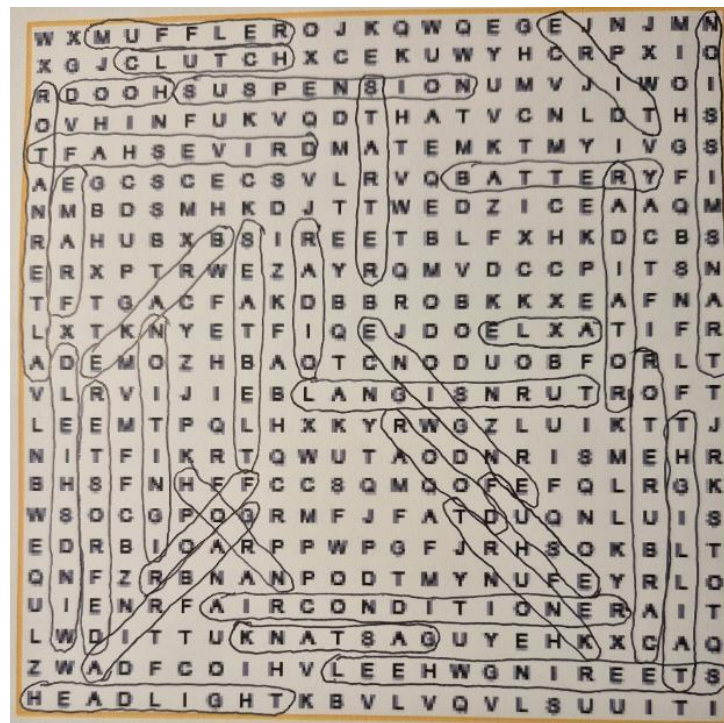 W X M U F F L E R O J K Q W Q E G E J N J M N
X G J C L U T C H X C E K U W Y H C R P X I O
R D O O H S U S P E N S I O N U M V J I W O I
O V H I N F U K V Q D T H A T V C N L D T H S
T F A H S E V I R D M A T E M K T M Y I V G S
A E G C S C E C S V L R V Q B A T T E R Y F I
N M B D S M H K D J T T W E D Z I C E A A Q M
R A H U B X B S I R E E T B L F X H K D C B S
E R X P T R W E Z A Y R Q M V D C C P I T S N
T F T G A C F A K D B B R O B K K X E A F N A
L X T K N Y E T F I Q E J D O E L X A T I F R
A D E M O Z H B A O T C N O D U O B F O R L T
V L R V I J I E B L A N G I S N R U T R O F T
L E E M T P Q L H X K Y R W G Z L U I K T T J
N I T F I K R T Q W U T A O D N R I S M E H R
B H S F N H E F C C S Q M Q O F E F Q L R G K
W S O C G P O G R M F J F A T D U Q N L U I S
E D R B I O A R P P W P G F J R H S O K B L T
Q N F Z R B N A N P O D T M Y N U F E Y R L O
U I E N R F A I R C O N D I T I O N E R A I T
L W D I T T U K N A T S A G U Y E H K X C A Q
Z W A D F C O I H V L E E H W G N I R E E T S
H E A D L I G H T K B V L V Q V L S U U I T I